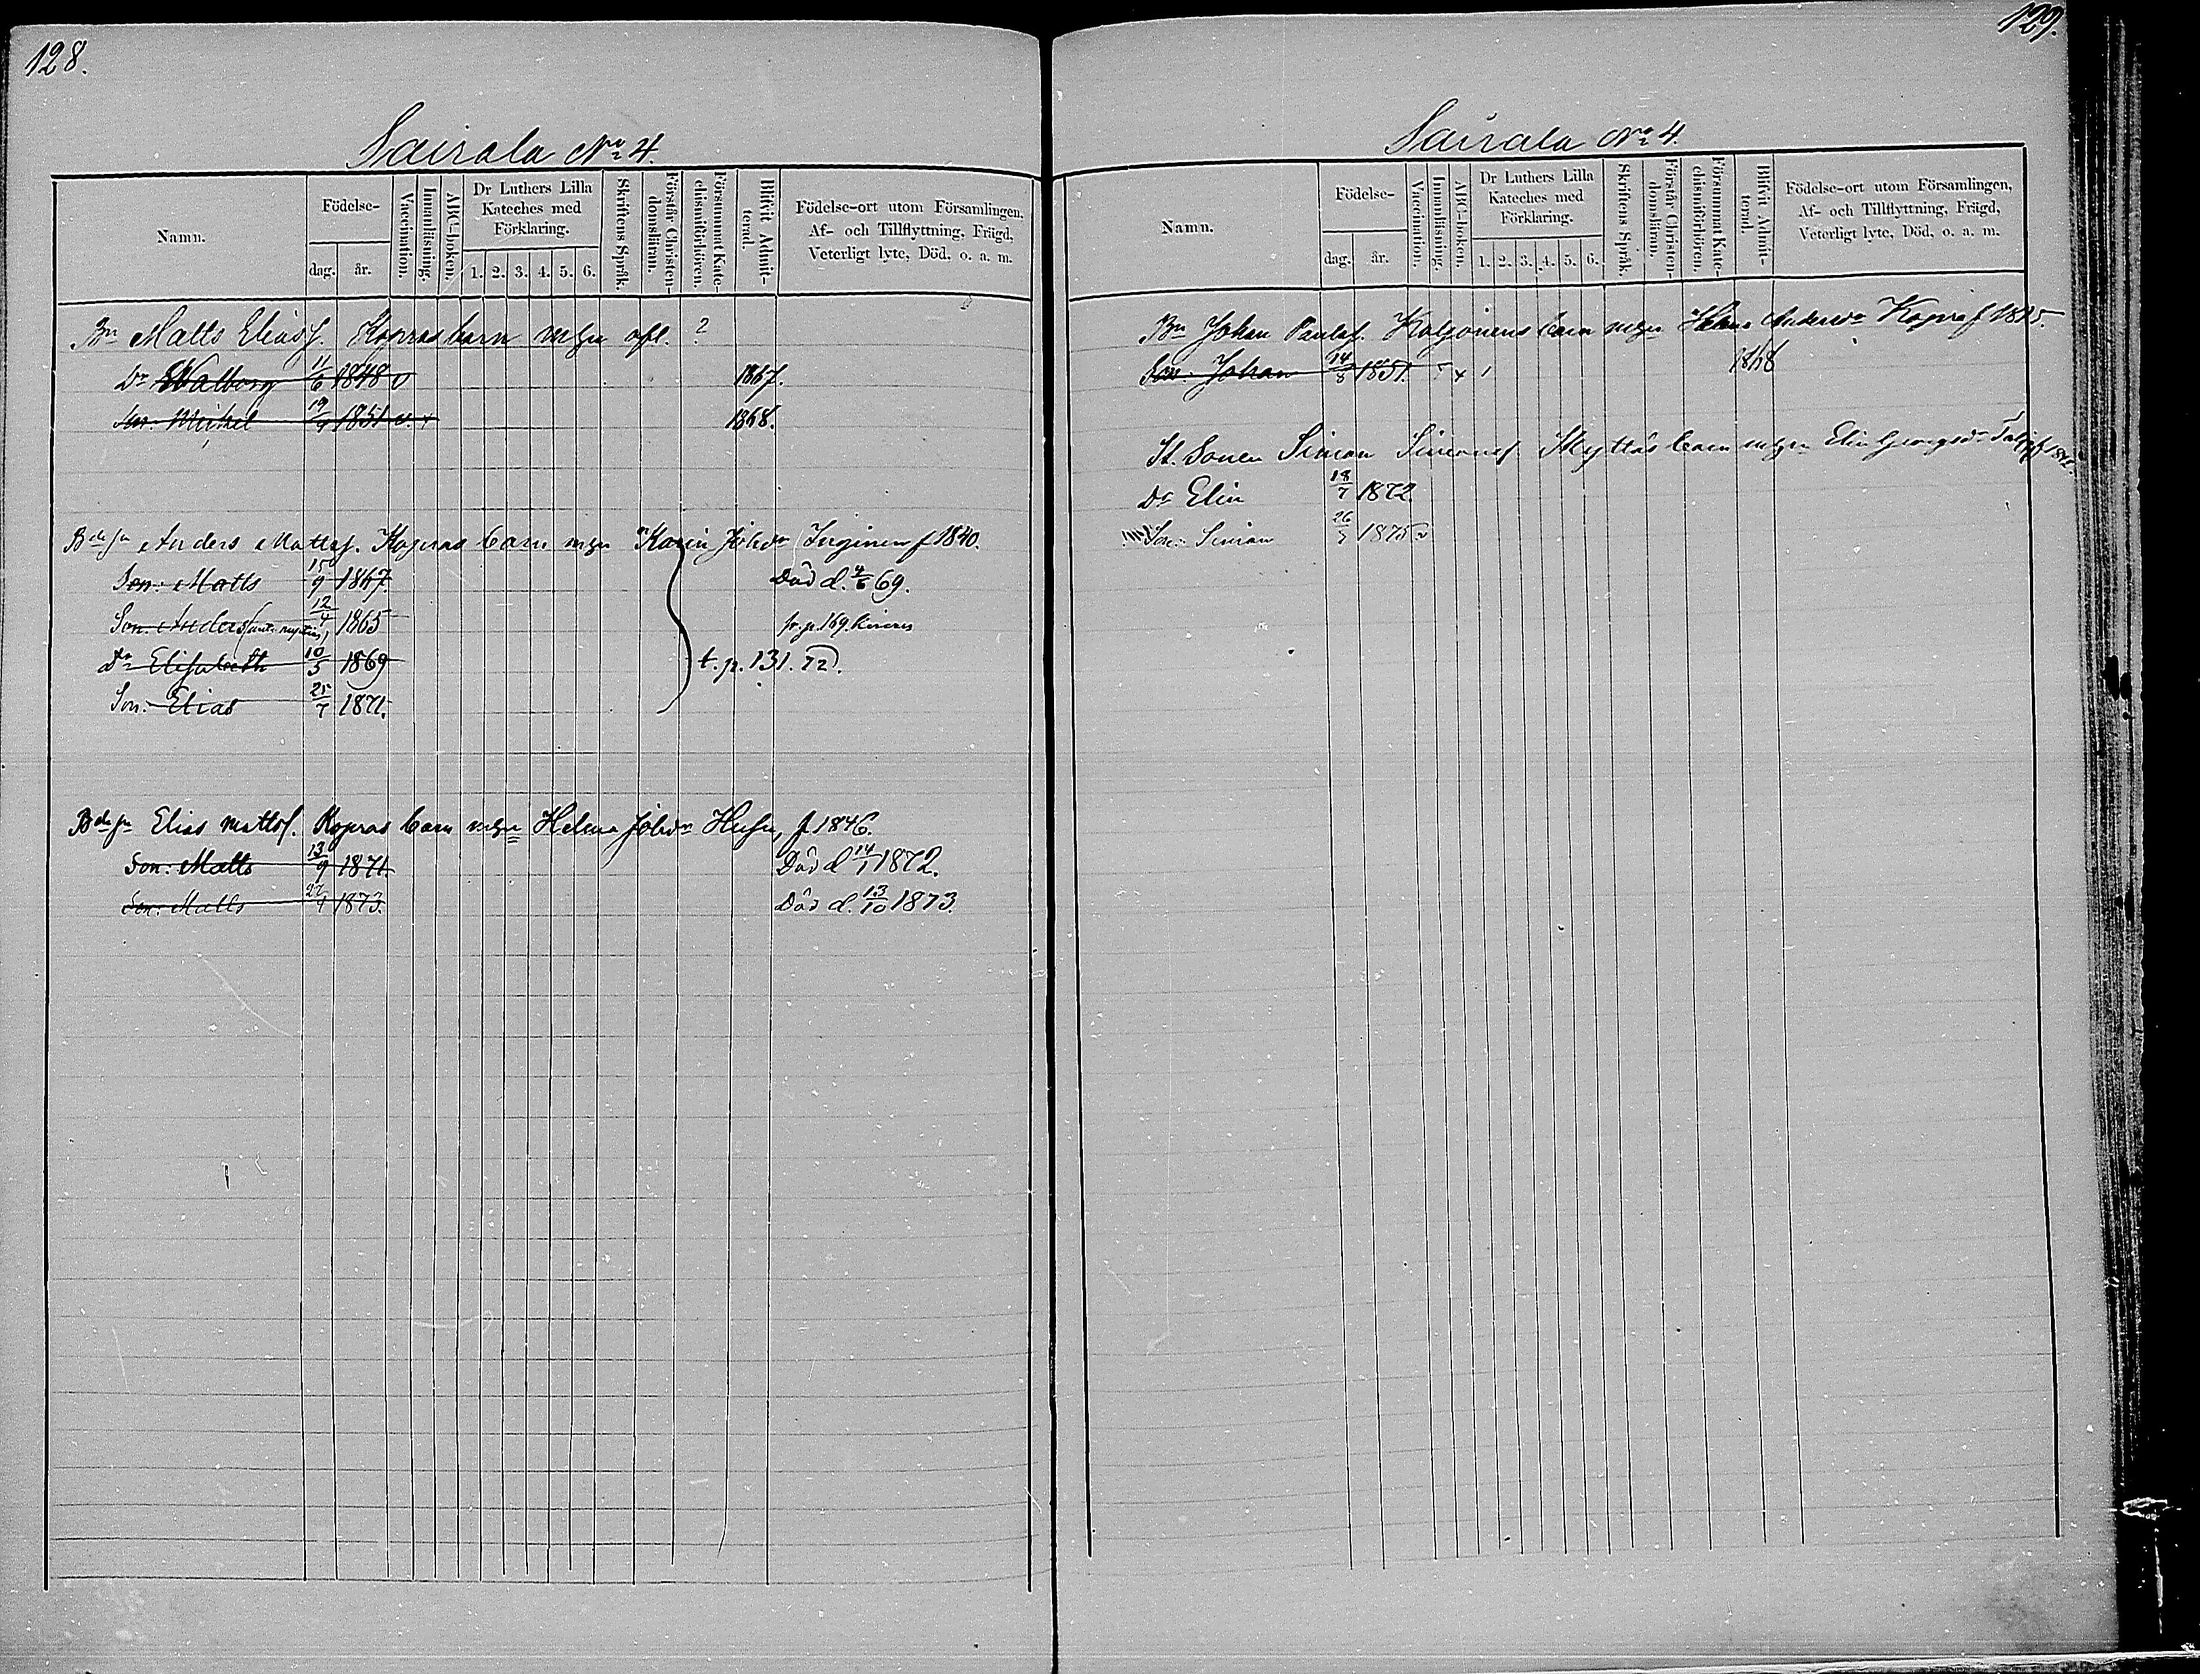 128.
Sairala No 4.
Namn.
Födelse-
dag.
år.
Vaccination.
Innanläsning.
ABC-boken.
Dr Luthers Lilla
Kateches med
Förklaring.
1. 2. 3. 4. 5. 6.
Skriftens Språk.
Förstår Christen-
domsläran.
Försummat Kate-
chismiförhören.
Blifvit Admit-
terad.
Födelse-ort utom Församlingen,
Af- och Tillflyttning, Frägd,
Veterligt lyte, Död, o. a. m.
Bn Matts Eliass. Kopras barn m. hu afl. ?
Dr Walborg 11/6 1848 v 1867.
Son: Mickel 19/9 1851 v. x 1868.
Bde sn Anders Mattss. Kopras barn mhu Karin Johdr Inginen f 1840.
Son: Matts 15/9 1867. Död d. 4/6 69.
Son: Anders 12/4 1865 fr. p. 169.
Dr Elisabeth 10/5 1869 t. p. 131. 72.
Son: Elias 25/7 1871.
Bde sn Elias Mattss. Kopras barn mhu Helena Johdr f. 1846.
Son: Matts 13/9 1871 Död d 14/1 1872.
Son: Matts 22/4 1873. Död d. 13/10 1873.
129.
Sairala No 4.
Namn.
Födelse-
dag.
år.
Vaccination.
Innanläsning.
ABC-boken.
Dr Luthers Lilla
Kateches med
Förklaring.
1. 2. 3. 4. 5. 6.
Skriftens Språk.
Förstår Christen-
domsläran.
Försummat Kate-
chismiförhören.
Blifvit Admit-
terad.
Födelse-ort utom Församlingen,
Af- och Tillflyttning, Frägd,
Veterligt lyte, Död, o. a. m.
Bn Johan Paulss. Koljonens barn mhu Andersdr Kopra f 1825.
Son: Johan 14/8 1851. x 1 1868
St. Sonen Simon Simonss Skyttäs barn mhu Elin Georgsdr
Dr Elin 18/7 1872
Son: Simon 1875